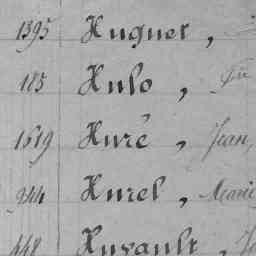 1395 Huguet,
185 Hulo,
1619 Huré, Jean,
344 Hurel, Marie
448 Husault,